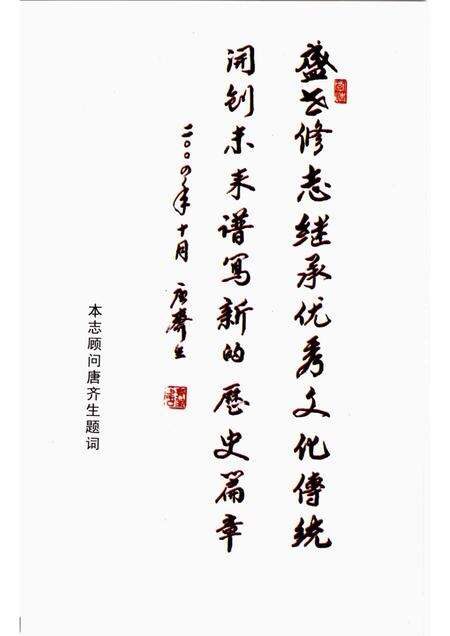 盛世修志继承优秀文化傳統
开创未来谱写新的歷史篇章
二〇〇四年十月 唐齊生
本志顾问唐齐生题词